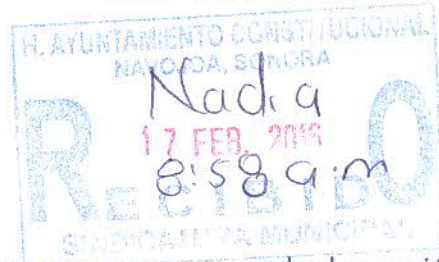 H. AYUNTAMIENTO CONSTITUCIONAL
NAVOJOA, SONORA
Nadia
17 FEB.
8:58 a.m
RECIBIDO
SINDICATURA MUNICIPAL